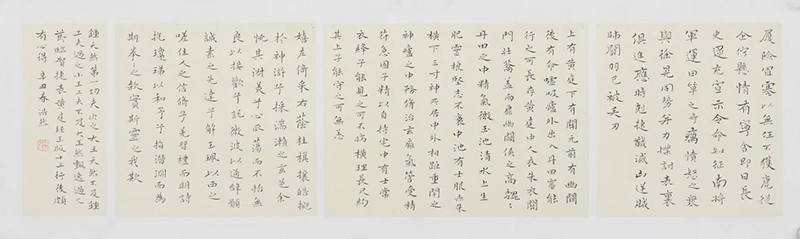 履險冒寒以無任不獲扈從
企佇懸情有寧舍即日長
史逮充宣示令命知征南將
軍運田單之奇厲憤怒之眾
與徐晃同勢并力撲討表裏
俱進應時剋捷馘滅凶逆賊
帥關羽已被矢刃
上有黃庭下有關元前有幽闕
後有命噓吸廬外出入丹田審能
行之可長存黃庭中人衣朱衣關
門壯籥蓋兩扉幽闕俠之高巍〻
丹田之中精氣微玉池清水上生
肥靈根堅志不衰中池有士服赤朱
橫下三寸神所居中外相距重閉之
神廬之中務脩治玄廱氣管受精
符急固子精以自持宅中有士常
衣絳子能見之可不病橫理長尺約
其上子能守之可無恙
嬉左倚采旄右蔭桂旗攘皓腕
於神滸兮採湍瀨之玄芝余
悅其淑美兮心振蕩而不怡無
良以接歡兮託微波以通辭願
誠素之先達兮解玉珮以要之
嗟佳人之信脩兮羌習禮而明詩
抗瓊珶以和予兮指潛淵而為
期拳〻之款實斯靈之我欺
鍾天然第一功夫次之大王天然不及鍾
工夫過之小王工夫不及大王天然飄逸過之
賀捷表黃庭經王版十三行後頗
有心得 辛丑春浩然